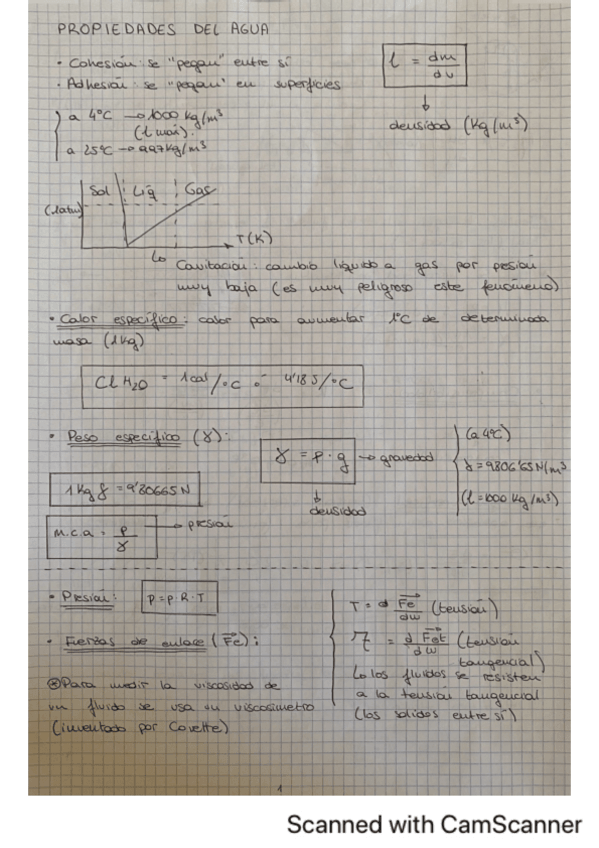 PROPIEDADES DEL AGUA
• Cohesión: se "pegan" entre sí
• Adhesión: se "pegan" en superficies
ρ = dm/dv
densidad (Kg/m³)
a 4ºC → 1000 Kg/m³
(ρ max).
a 25ºC → 997 Kg/m³
Sol Líq Gas
(1atm)
T(K)
Cavitación: cambio líquido a gas por presión
muy baja (es muy peligroso este fenómeno)
• Calor específico: calor para aumentar 1ºC de determinada
masa (1Kg)
CL H₂O = 1cal/ºC ó 4'18 J/ºC
• Peso específico (γ):
γ = ρ · g → gravedad
densidad
(a 4ºC)
γ = 9806'65 N/m³
(ρ = 1000 Kg/m³)
1 Kg f = 9'80665 N
m.c.a = P/γ → presión
• Presión: P = ρ · R · T
• Fuerzas de enlace (Fe):
T = d Fe/dw (tensión)
= d Fet/dw (tensión
tangencial)
los fluidos se resisten
a la tensión tangencial
(los sólidos entre sí)
⊛ Para medir la viscosidad de
un fluido se usa un viscosímetro
(inventado por Couette)
1
Scanned with CamScanner